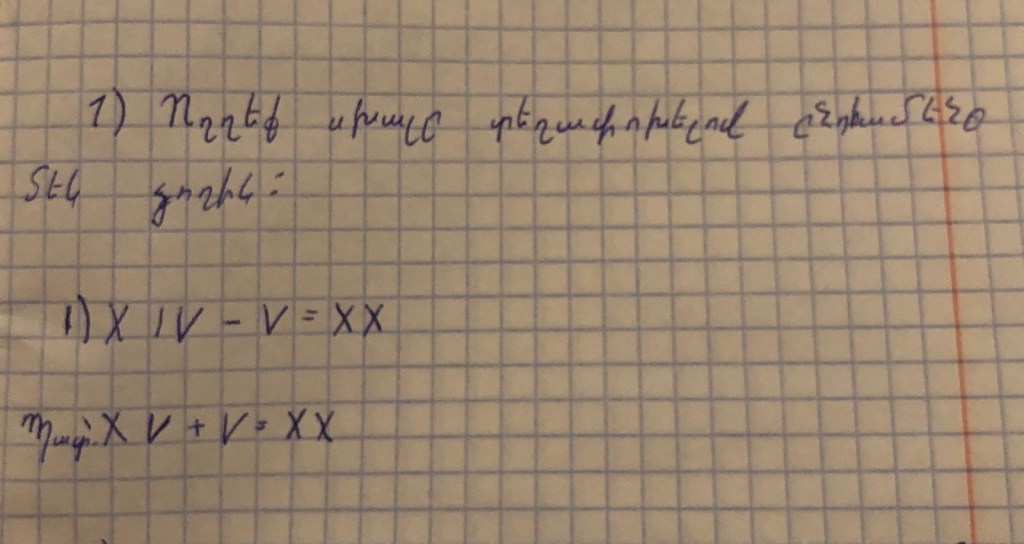 1) Ուղղեք սխալը տեղափոխելով ընդամենը
մեկ չորիկ:
1) X IV - V = XX
Պատ՝. X V + V = XX